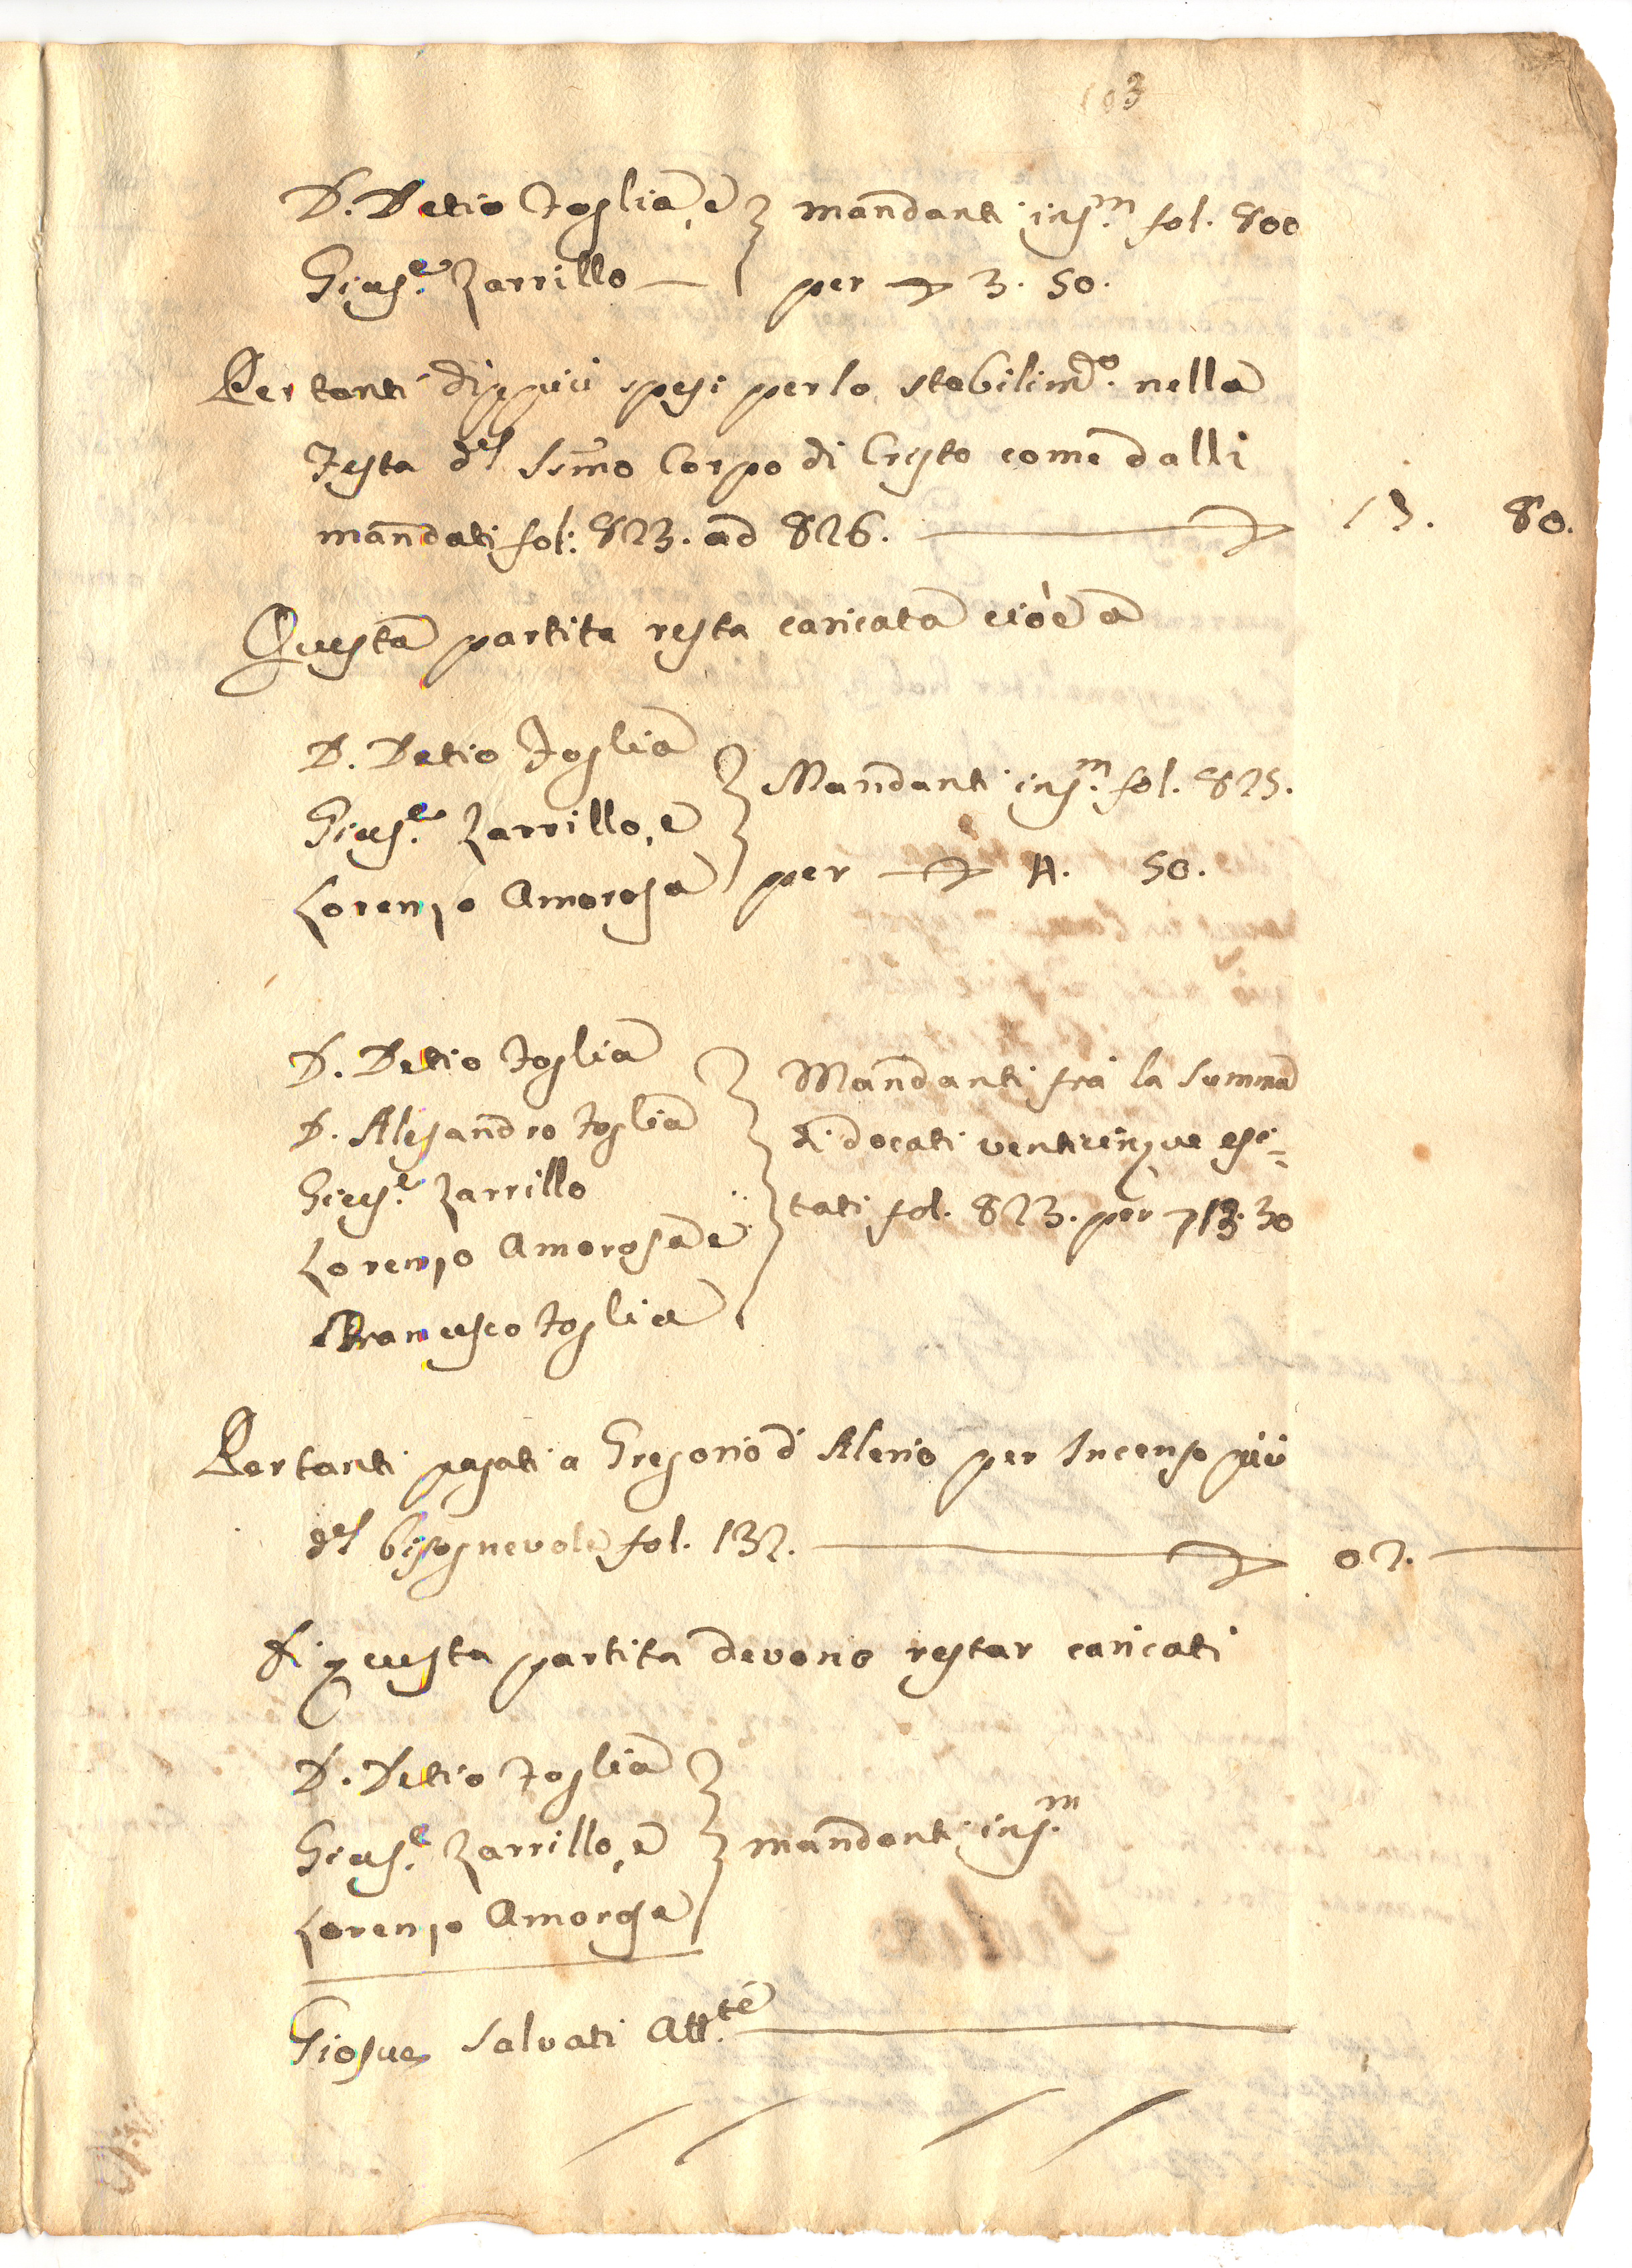 103
D. Detio Foglia, e mandanti ins.m fol. 800
Gius.e Zarrillo — per 3. 50.
Per tanti dippiù spesi per lo stabilim.to nella
Festa del SSmo Corpo di Cristo come dalli
mandati fol: 823. ad 826. 80.
Questa partita resta caricata cioè a
D. Detio Foglia
Gius.e Zarrillo, e Mandanti ins.m fol. 825.
Lorenzo Amorosa per 4. 50.
D. Detio Foglia Mandanti frà la summa
D. Alesandro Foglia di docati venticinque esi=
Gius.e Zarrillo tati fol. 823. per 13. 30
Lorenzo Amorosa e
Francesco Foglia
Per tanti pagati a Gregorio d'Alerio per Incenso più
del bisognevole fol. 132. 02. —
Di questa partita devono restar caricati
D. Detio Foglia
Gius.e Zarrillo, e mandanti ins.m
Lorenzo Amorosa
Giosue Salvati Att.te